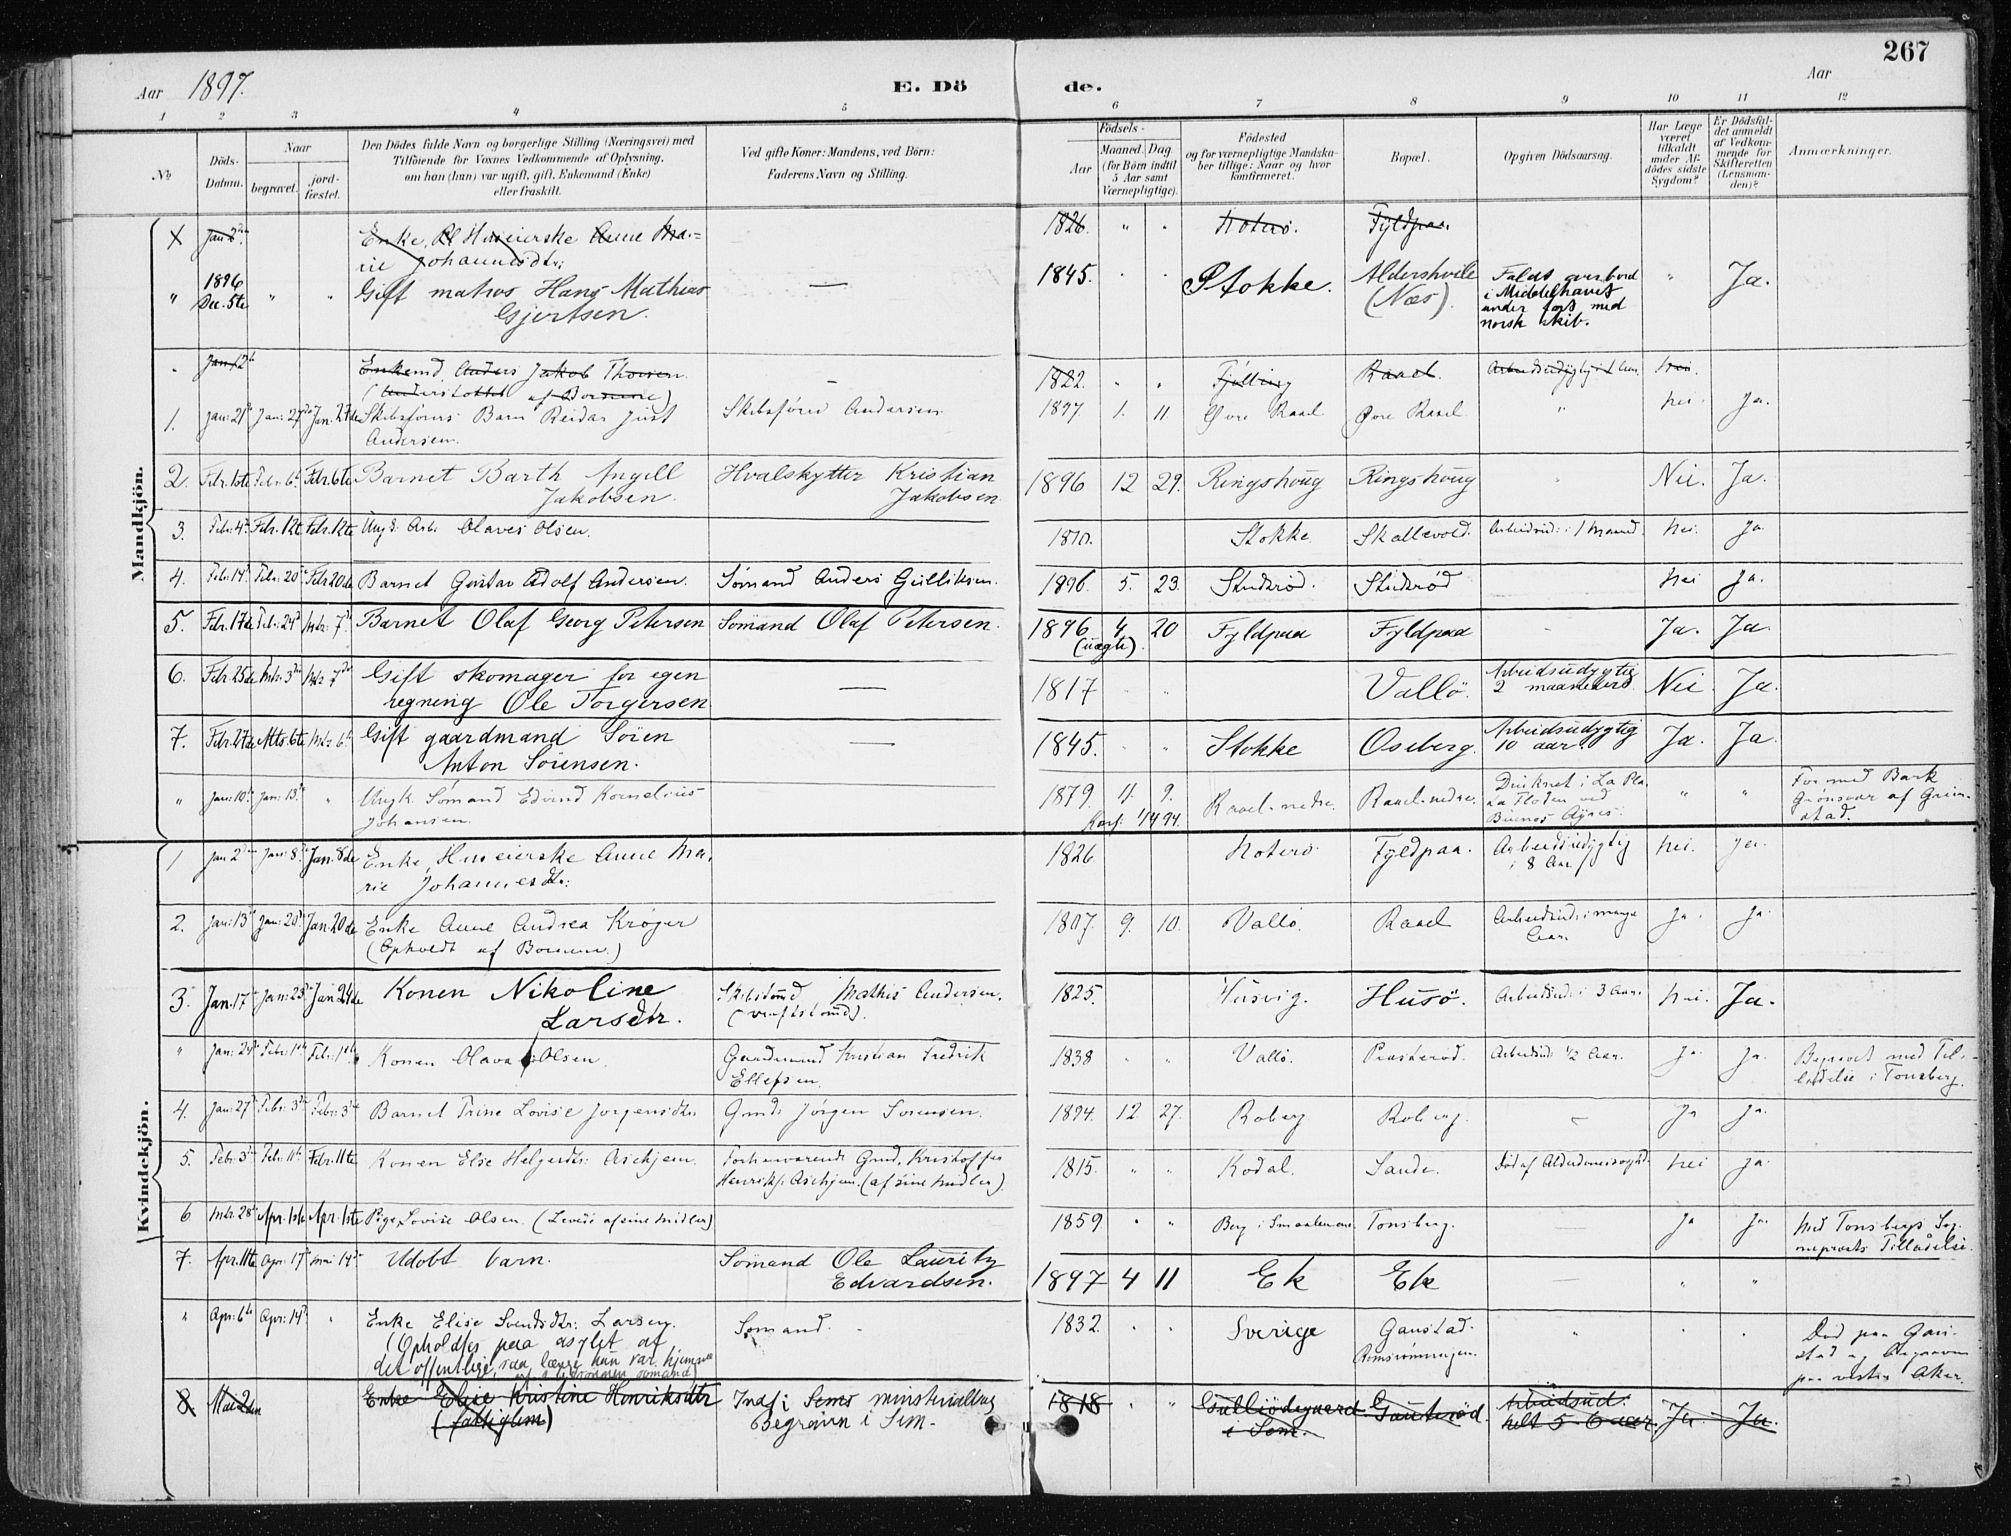 267
Aar 1897. E. Dö de. Aar
1 2 3 4 5 6 7 8 9 10 11 12
No
Döds-Datum.
Naar
begravet.
jord-fæstet.
Den Dödes fulde Navn og borgerlige Stilling (Næringsvei) med
Tilföiende for Voxnes Vedkommende af Oplysning,
om han (hun) var ugift, gift, Enkemand (Enke)
eller fraskilt.
Ved gifte Koner: Mandens, ved Börn:
Faderens Navn og Stilling.
Födsels-
Aar
Maaned. Dag.
(for Börn indtil
5 Aar samt
Værnepligtige).
Födested
og for værnepligtige Mandska-
ber tillige: Naar og hvor
konfirmeret.
Bopæl.
Opgiven Dödsaarsag.
Har Læge
været
tilkaldt
under Af-
dödes sidste
Sygdom?
Er Dödsfal-
det anmeldt
af Vedkom-
mende for
Skifteretten
(Lensman-
den)?
Anmærkninger.
Mandkjön.
Enke, Huseierske Anne Ma= 1826. " " Noterö. Fyldpaa.
rie Johannesdtr:
" 1896 Dec. 5te " " Gift matros Hans Mathias Gjertsen. — 1845. Stokke. Aldershvile (Næs). Faldt overbord i Middelhavet under fart med norsk skib. " Ja.
Jan 2 Enkemd Anders Jakob Thorsen. — 1822. " " Fjölling Raael. Nei.
1. Jan: 21 Jan: 27 Jan. 27de Skibsförers Barn Reidar Just Andersen. Skibsförer Andersen. 1897. 1. 11 Övre Raael Övre Raael " Nei Ja.
2. Febr. 1ste Febr. 6 Febr. 6te Barnet Barth Angell Jakobsen. Hvalskytter Kristian Jakobsen 1896 12 29. Ringshoug Ringshoug Nei. Ja.
3. Feb: 4 Febr. 12te Febr. 12te Ungk. Arb. Olaves Olsen. 1870. Stokke Skallevold. Arbeidsud: i 1 Maaned. Nei. Ja
4. Feb: 14 Feb: 20 Febr 20de Barnet Gustav Adolf Andersen. Sömand Anders Gulliksen. 1896. 5. 23. Sludsröd. Sludsröd Nei Ja.
5. Febr. 17de Feb: 24 Mrts 7 Barnet Olaf Georg Petersen Sömand Olaf Petersen. 1896 4 20 (uægte). Fyldpaa Fyldpaa - Ja. Ja
6. Febr. 25de Mrts. 3 Mrts 7 Gift skomager for egen regning Ole Torgersen — 1817 " " Vallö. Arbeidsudygtig 2 maaneder. Nei. Ja.
7. Febr. 27de Mts. 6te Mrts 6 Gift gaardmand Sören Anton Sörensen. — 1845. " " Stokke Oseberg. Arbeidsudygtig 10 aar. Ja. Ja.
" Jan: 10 Jan: 13 " Ungk. Sömand Edvind Kornelius Johansen. 1879. 4. 9. Konf: 1/4 94. Raael-nedre. Raael-nedre. Druknet i La Pla-ta Floden ved Buenos Ayres. " " For med Bark Grönsvær af Grimstad.
Kvindekjön.
1 Jan 2 Jan: 8 Jan. 8de Enke, Huseierske Anne Marie Johannesdtr: 1826 Noterö. Fyldpaa. Arbeidsudygtig i 8 Aar. Nei. Ja.
2. Jan: 13 Jan: 20 Jan. 20de Enke Anne Andrea Kröger 1807. 9. 10. Vallö. Raael Arbeidsud: i mange Aar. Ja. Ja.
3. Jan. 17 Jan: 23 Jan 24de Konen Nikoline Larsdtr. Mathis Andersen. 1825. Husvig. Husö. Arbeidsud: i 3 Aar. Nei. Ja.
" Jan: 24 Feb: 1 Feb: 1 Konen Olava Olsen Gaardmand Kristian Fredrik Ellefsen. 1838 " " Vallö. Presteröd. Arbeidsud: 1/2 Aar. Ja. Ja. Begravet med Tilladelse i Tonsberg.
4. Jan: 27 Feb: 3 Feb: 3 Barnet Trine Lovise Jorgensdtr. Gmd: Jörgen Sörensen. 1894. 12 27. Roberg. Roberg. — Ja Ja.
5. Feb: 3 Feb: 11 Febr. 11te Konen Else Helgesdtr: Askjem. Forhenværende Gmd. Kristoffer Henriks. Askjem. (af sine midler). 1815. " " Kodal. Sande. Död af Alderdomssvaghed. Nei Ja.
6 Mts. 28 Apr. 1ste Apr. 1ste Pige Lovise Olsen. (Levede af sine Midler) 1859. " " Berg i Smaalenene Tonsberg. — Ja Ja. Med Tonsbergs Sogneprests Tilladelse.
7. Apr. 11te Apr. 17 Mai 14 Udöbt barn. Sömand Ole Lauritz Edvardsen. 1897 4 11 Ek Ek " "
" Apr: 6 Apr: 14 " Enke Elise Svendsdtr: Larsen. Sömand. 1832. " " Sverige Gaustad. " " Död paa Gaustad og begraven paa vestre Aker.
(Opholdtes paa asylet af
det offentlige, saa længe hun var hjemme
8 Mai 2den Enke Elise Kristine Henriksdtr (fattiglem) Indf: i Sems ministerialbog Begraven i Sem. 1818 " " Gulliödegaard i Sem. Gauteröd. Arbeidsud. helt 5-6 aar. Ja. Ja.